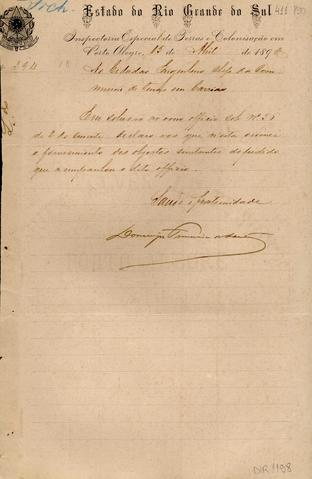 Arch.
411 130
Estado do Rio Grande do Sul
Inspectoria Especial de Terras e Colonisação em
Porto Alegre, 15 de Abril de 189
Nº 294
Ao Cidadão Engenheiro Chefe da Com
missão de terras em Caxias
Em solução ao vosso officio sob Nº 30
de 2 do corrente declaro vos que n'esta
o fornecimento dos objectos constantes do pedido
que acompanhou o dito officio.
Saude e fraternidade
Domingos
DIR 1198